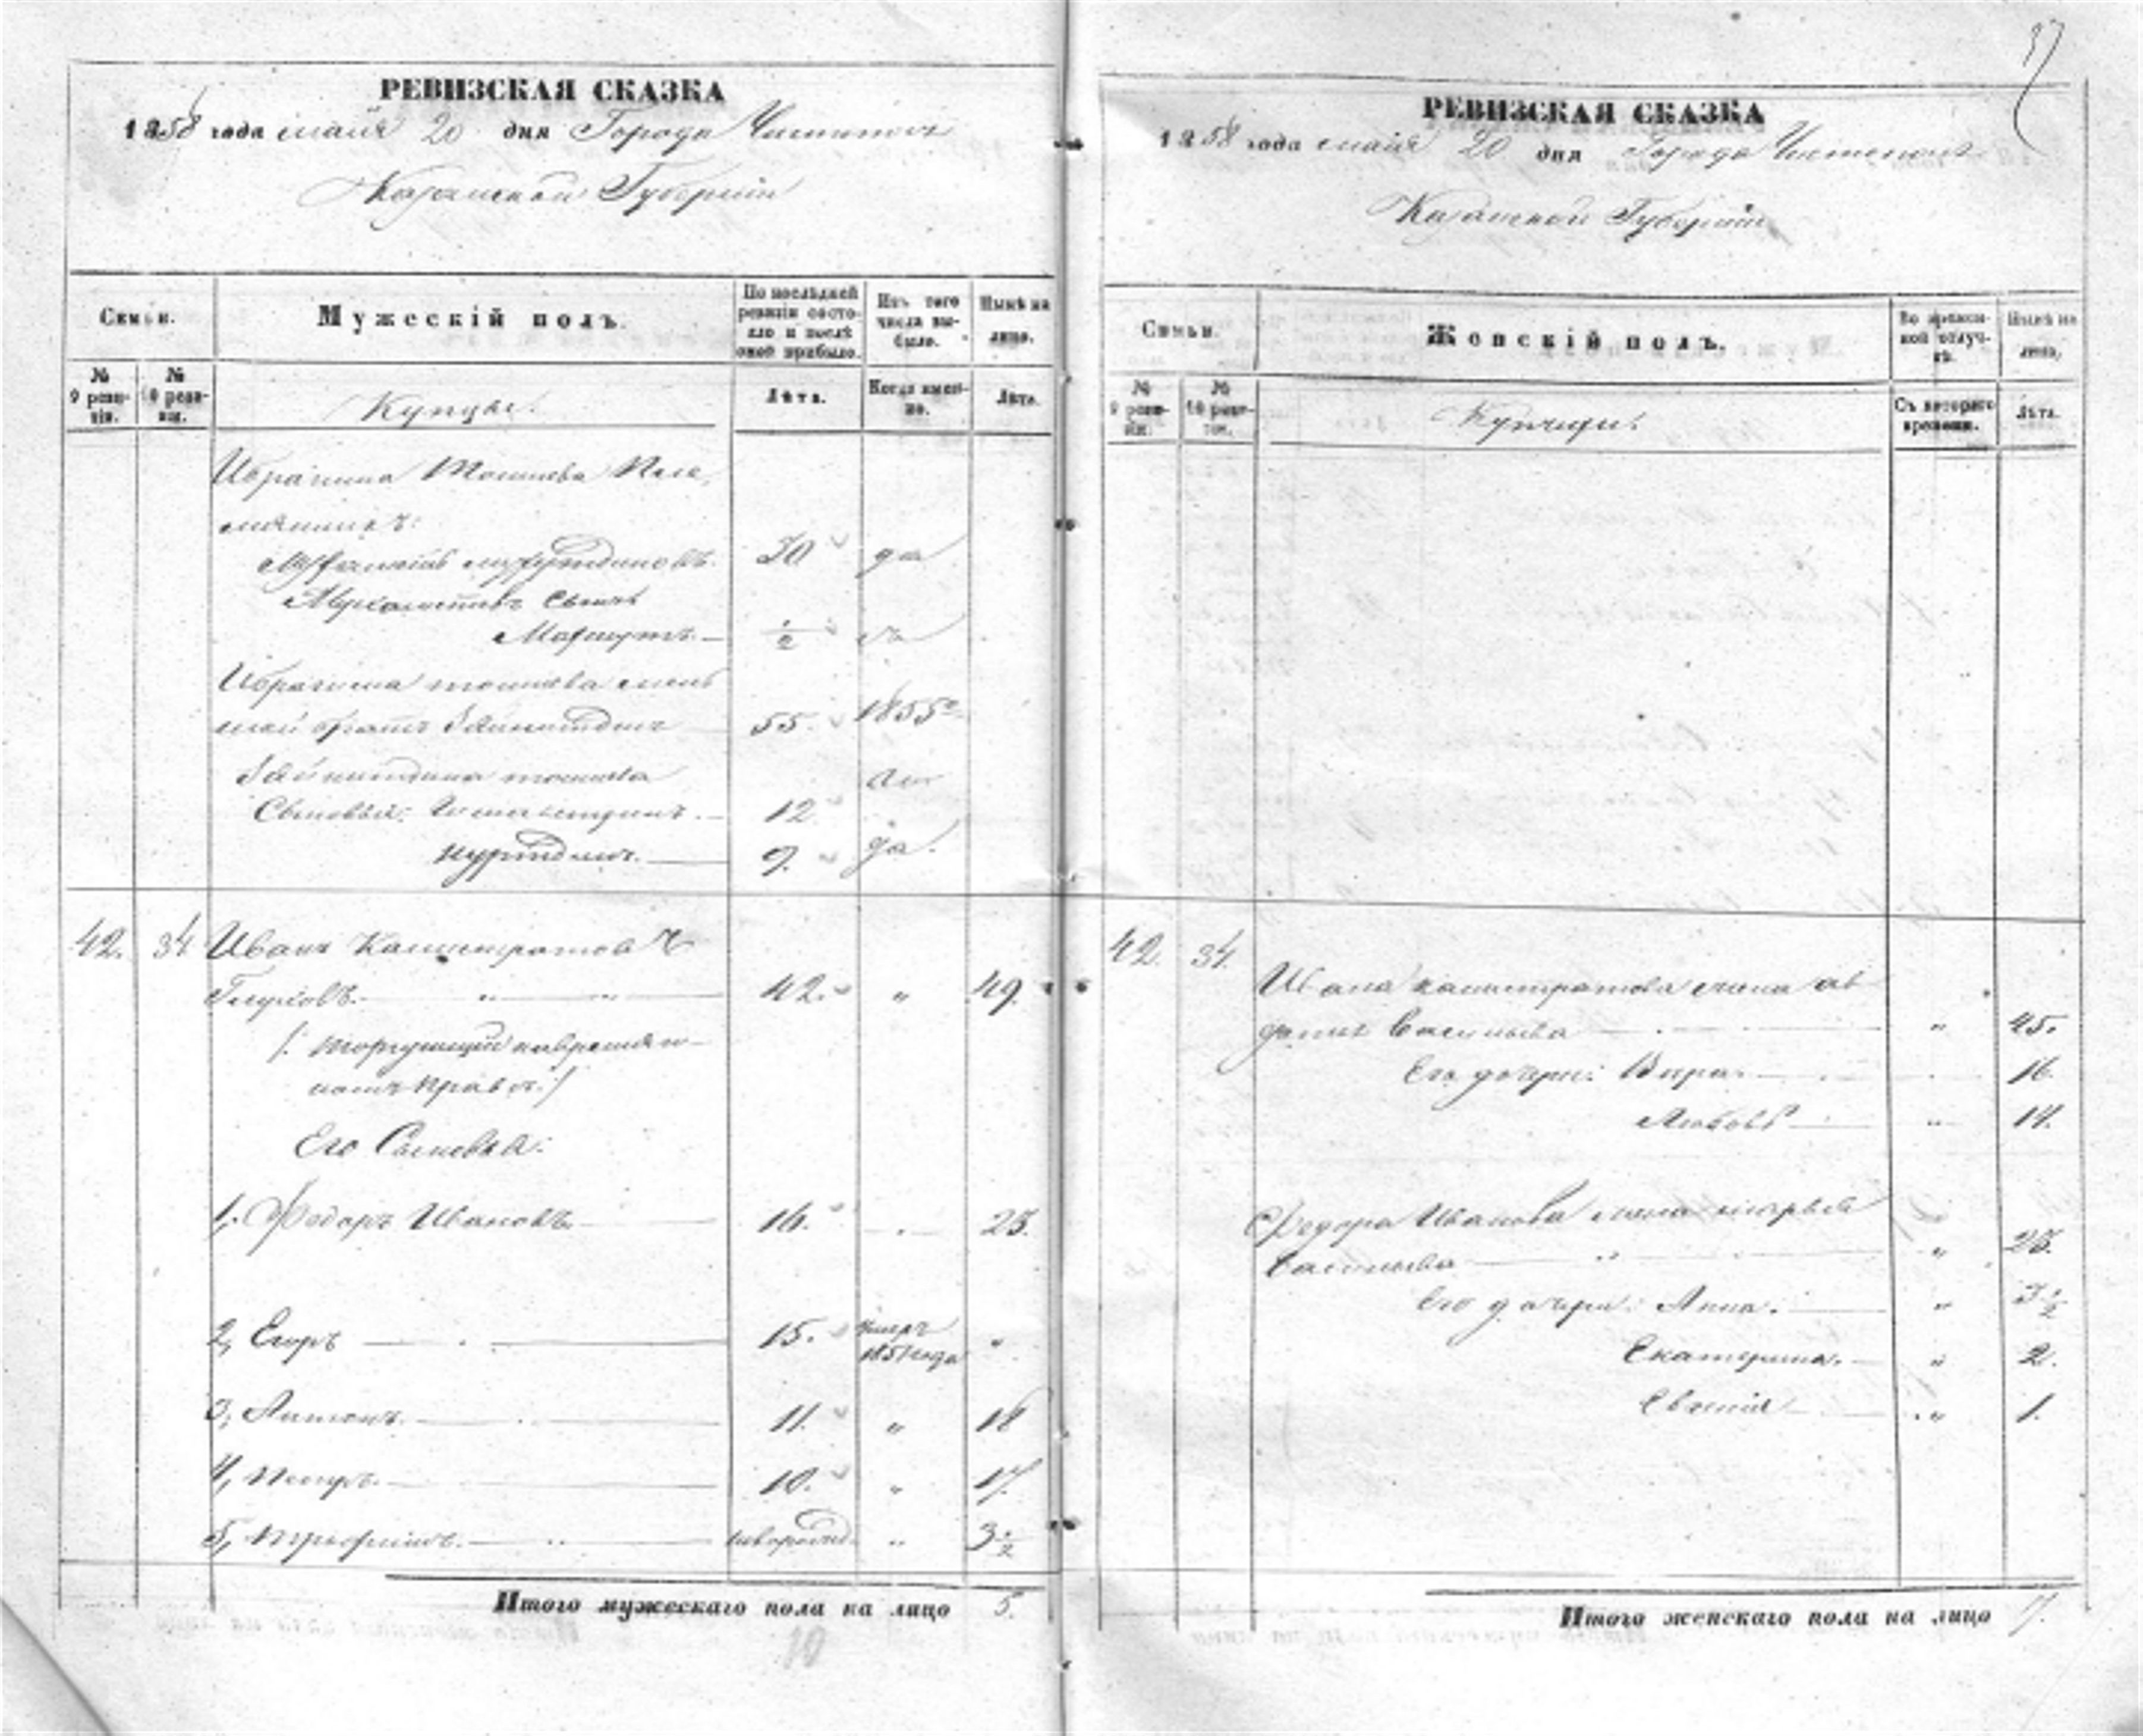 37
РЕВИЗСКАЯ СКАЗКА
1858 года майя 20 дня Города Чистополя
Казанской Губернии
Семьи.
Мужескій полъ.
По послѣдней ревизіи состояло и послѣ оной прибыло.
Изъ того числа выбыло.
Нынѣ на лицо.
№ 9 ревизіи.
№ 10 ревизіи.
Купцы.
Лѣта.
Когда именно.
Лѣта.
Ибрагима
мянникъ:
30 да
сынъ
Махмутъ. ½
Ибрагима мень
шой братъ Зайнитдинъ 55. 1855
Зайнитдина
Сыновья: 12
Нуритдинъ. 9. да.
42. 34 Иванъ Калистратовъ
Глуховъ. 42. " 49.
/: торгующій
правѣ :/
Его Сыновья:
1, Федоръ Ивановъ 16. 23.
2, Егоръ 15. умеръ 1851 года "
3, Антонъ 11. " 18
4, Петръ. 10. " 17.
5, новорожд. " 3½
Итого мужескаго пола на лицо 5.
10
РЕВИЗСКАЯ СКАЗКА
1858 года майя 20 дня Города Чистополя
Казанской Губернии
Семьи.
Женскій полъ.
Во временной отлучкѣ.
Нынѣ на лицо.
№ 9 ревизіи.
№ 10 ревизіи.
Купчихи.
Съ котораго времени.
Лѣта.
42. 34.
Ивана Калистратова жена Ав
дотья Васильева " 45.
Его дочери: Вера 16.
Любовь " 14.
Федора Иванова жена Марья
Васильева " 23.
Его дочери: Анна. " 3½
Екатерина. " 2.
Евгенія " 1.
Итого женскаго пола на лицо 7.